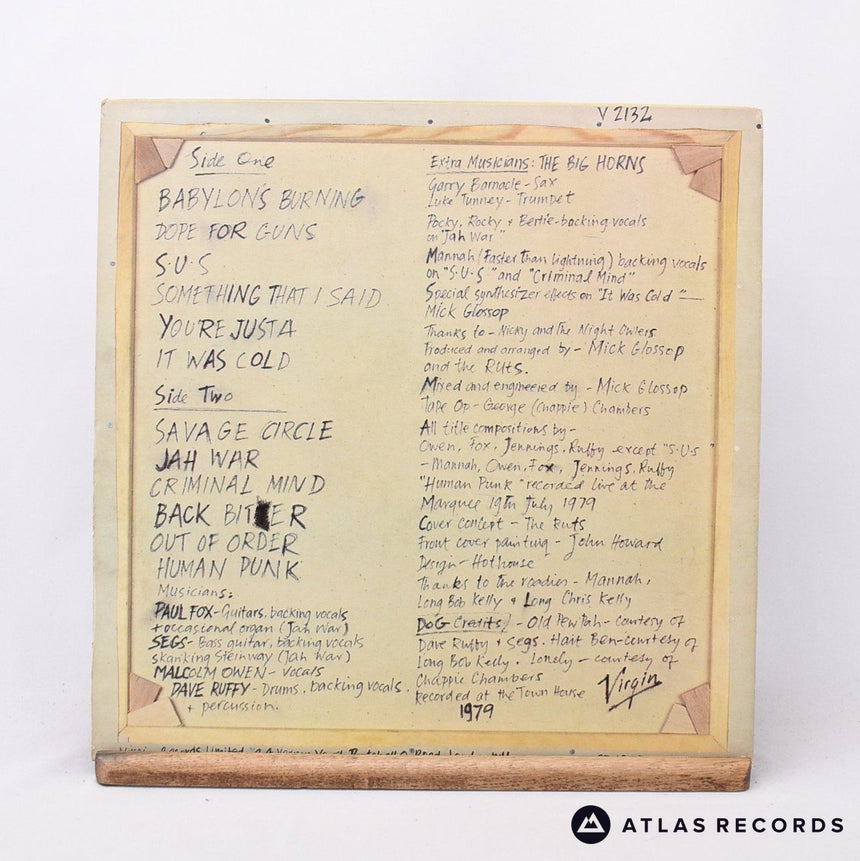 V 2132
Side One
BABYLON'S BURNING
DOPE FOR GUNS
S.U.S
SOMETHING THAT I SAID
YOU'RE JUST A
IT WAS COLD
Side Two
SAVAGE CIRCLE
JAH WAR
CRIMINAL MIND
BACK BITER
OUT OF ORDER
HUMAN PUNK
Musicians:
PAUL FOX - Guitars, backing vocals
+ occasional organ (Jah War)
SEGS - Bass guitar, backing vocals
skanking Steinway (Jah War)
MALCOLM OWEN - Vocals
DAVE RUFFY - Drums, backing vocals
+ percussion.
Extra Musicians: THE BIG HORNS
Garry Barnacle - Sax
Luke Tunney - Trumpet
Pocky, Rocky + Bertie - backing vocals
on "Jah War"
Mannah (Faster than lightning) backing vocals
on "S.U.S" and "Criminal Mind"
Special synthesizer effects on "It Was Cold" —
Mick Glossop
Thanks to - Nicky and The Night Owlers
Produced and arranged by - Mick Glossop
and the Ruts.
Mixed and engineered by - Mick Glossop
Tape Op - George (Chappie) Chambers
All title compositions by -
Owen, Fox, Jennings, Ruffy except "S.U.S"
- Mannah, Owen, Fox, Jennings, Ruffy
"Human Punk" recorded live at the
Marquee 19th July 1979
Cover concept - The Ruts
Front cover painting - John Howard
Design - Hothouse
Thanks to the roadies - Mannah,
Long Bob Kelly + Long Chris Kelly
DOG Credits / - Old Pew Pah - courtesy of
Dave Ruffy + Segs. Hait Ben - courtesy of
Long Bob Kelly. Lonely - courtesy of
Chappie Chambers
Recorded at the Town House
1979
Virgin
ATLAS RECORDS